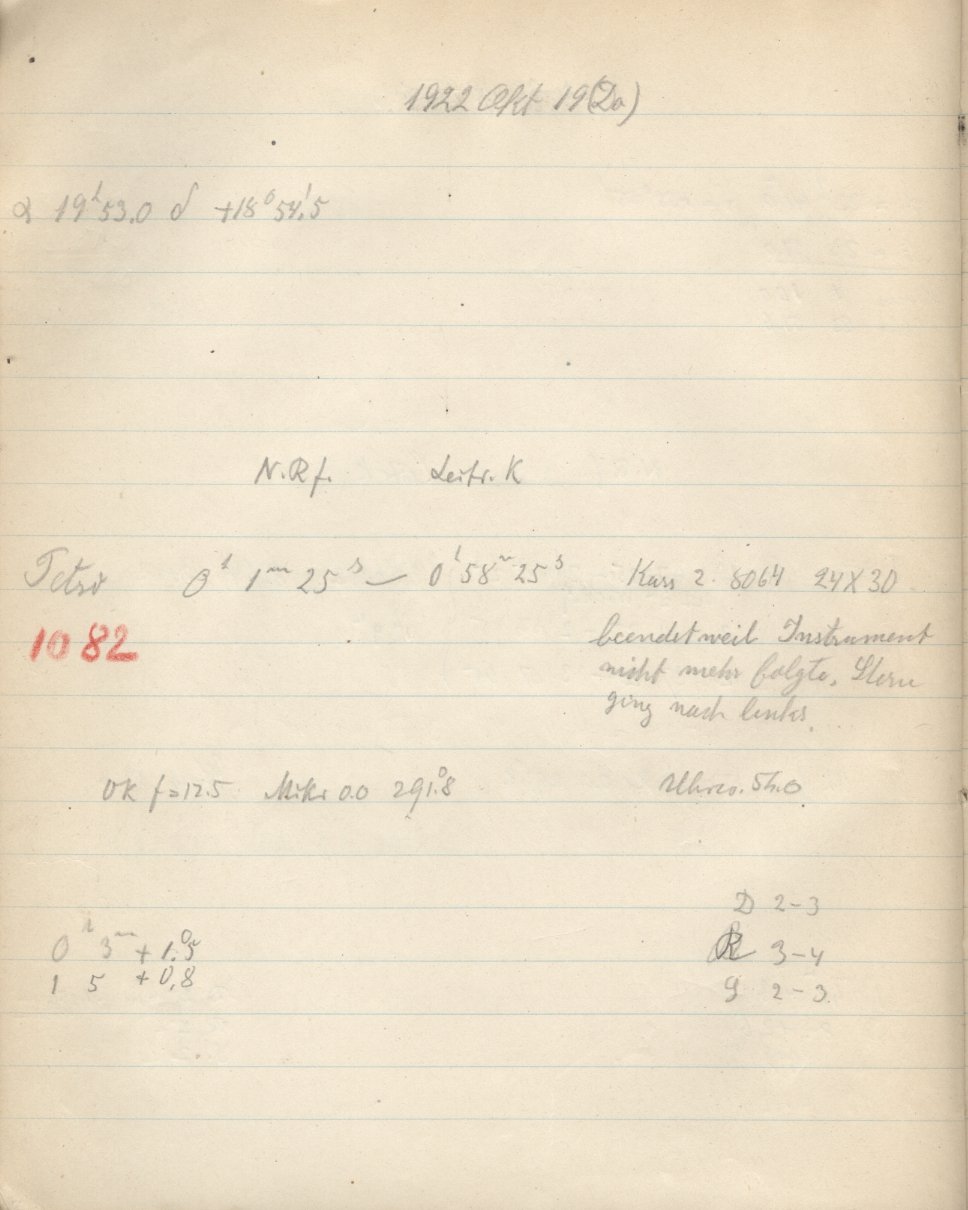 1922 Okt 19 (Do)
α 19ʰ53.0 δ +18°54'.5
N.Rf. Leitr. K
Tetro 0ʰ 1ᵐ 25ˢ — 0ʰ 58ᵐ 25ˢ Kass 2. 8064 24X30
1082
beendet weil Instrument
nicht mehr folgte, Stern
ging nach links.
Ok f=12.5 Mikr 0.0 291.°8
D 2-3
0ʰ 3ᵐ + 1.°5 R 3-4
1 5 + 0,8 G 2-3